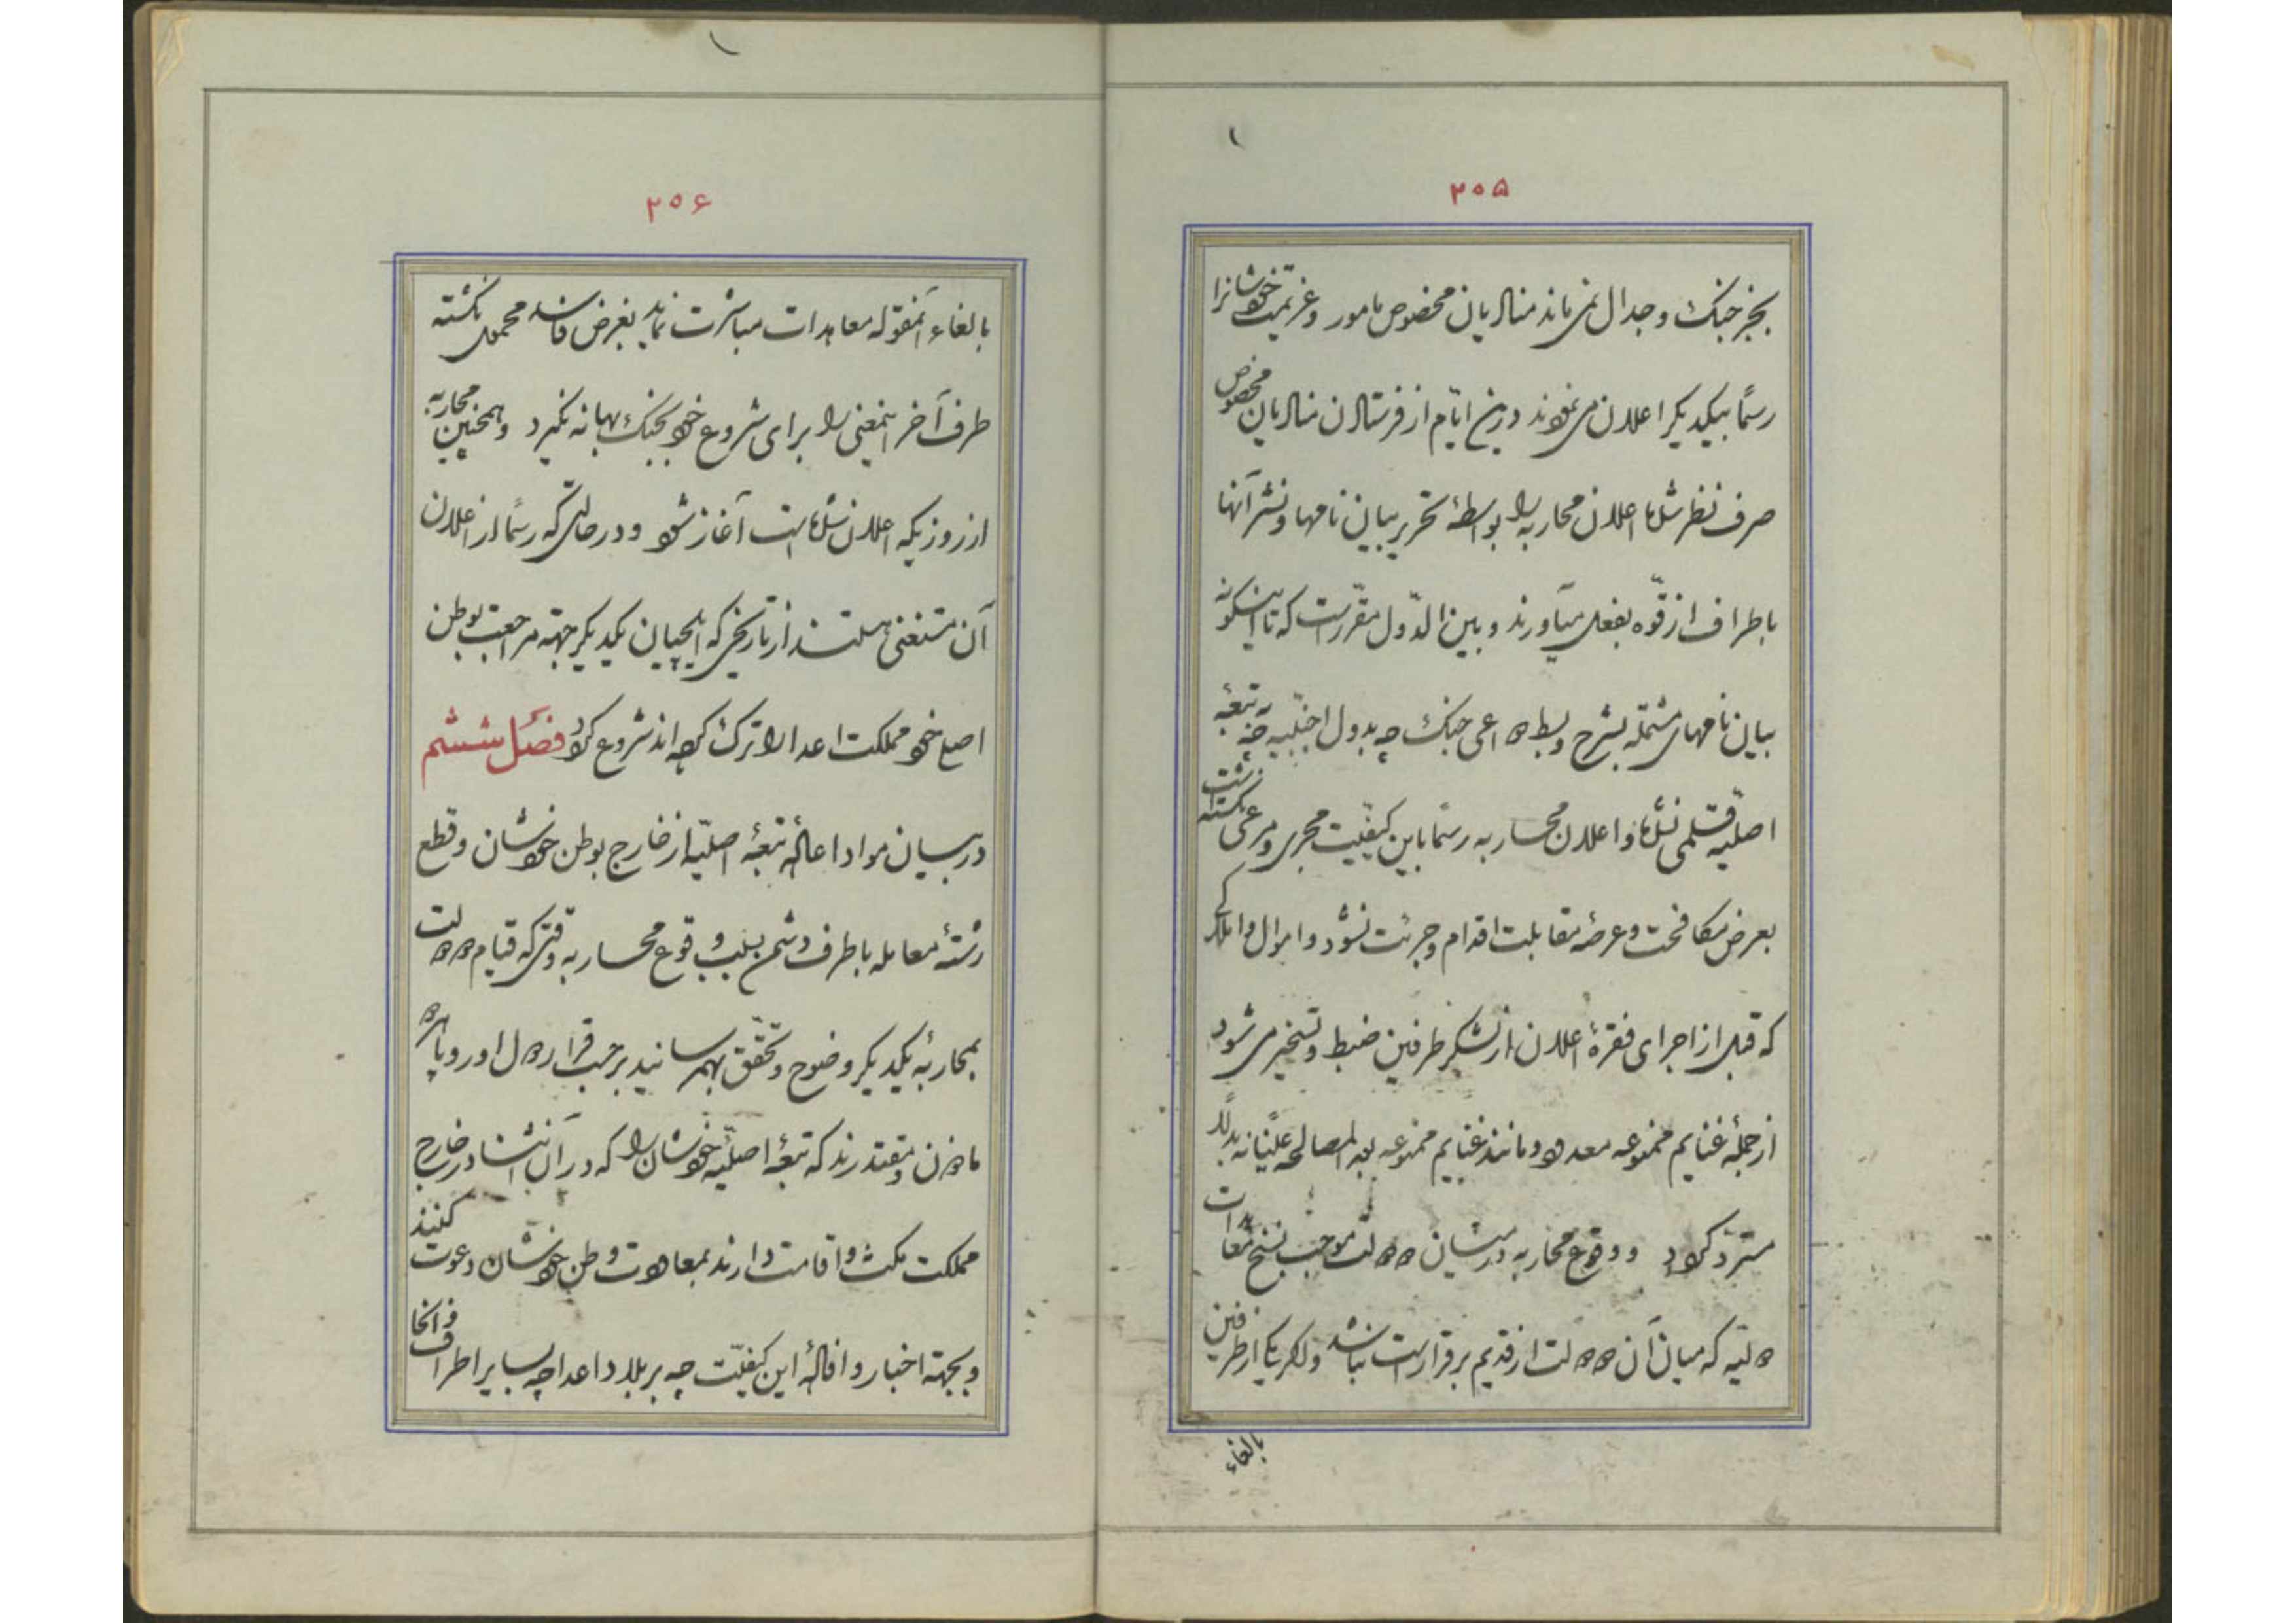 ۲۵۵
بجز جنک و جدال نمی ماند منادیان مخصوص مامور و عزیمت خودشانرا
رسماً بیکدیکر اعلان می نمودند درین ایام از فرستادن منادیان مخصوص
صرف نظر شده اعلان محاربه را بواسطهٔ تحریر بیان نامها و نشر آنها
باطراف از قوّه بفعل میآورند و بین الدّول مقرّر است که تا اینکونه
بیان نامهای مشتمله بشرح و بسط دواعی جنک چه بدول اجنبیه چه به تبعهٔ
اصلیّه قلمی نشده و اعلان محاربه رسماً باین کیفیّت مجری و مرعی نکشته است
بعرض مکافحت و عرصهٔ مقابلت اقدام و جرئت نشود و اموال و املاکی
که قبل از اجرای فقرهٔ اعلان از لشکر طرفین ضبط و تسخیر می شود
از جملهٔ غنایم ممنوعه معدود و مانند غنایم ممنوعه بعد المصالحه علنیانه
مسترد کردد و وقوع محاربه در میان دو دولت موجب نسخ معاهدات
دولتیه که میان آن دو دولت از قدیم برقرار است نباشد ولکر یکی از طرفین
بالغاء
۲۵۶
بالغاء آنمقوله معاهدات مباشرت نماید بغرض فاسد محمول نکشته
طرف آخر اینمعنی را برای شروع خود بجنک بهانه نکیرد و همچنین محاربه
از روزیکه اعلان شده است آغاز شود و در حالتی که رسماً از اعلان
آن مستغنی هستند از تاریخی که ایلچیان یکدیکر جهته مراجعت بوطن
اصلی خود مملکت اعدا را ترک کرده اند شروع کردد فصل ششم
در بیان مواد اعادهٔ تبعهٔ اصلیّه از خارج بوطن خودشان و قطع
رشتهٔ معامله با طرف دشمن بسبب وقوع محاربه وقتی که قیام دو دولت
بمحاربهٔ یکدیکر وضوح و تحقّق بهم رسانید برحسب قرار دول اوروپا هر دو
ماذون و مقتدرند که تبعهٔ اصلیّهٔ خودشان را که در آن اثنا در خارج
مملکت مکث و اقامت دارند بمعاودت وطن خودشان دعوت کنند
و بجهته اخبار و افادهٔ این کیفیّت چه بر بلاد اعدا چه بسایر اطراف و انحا